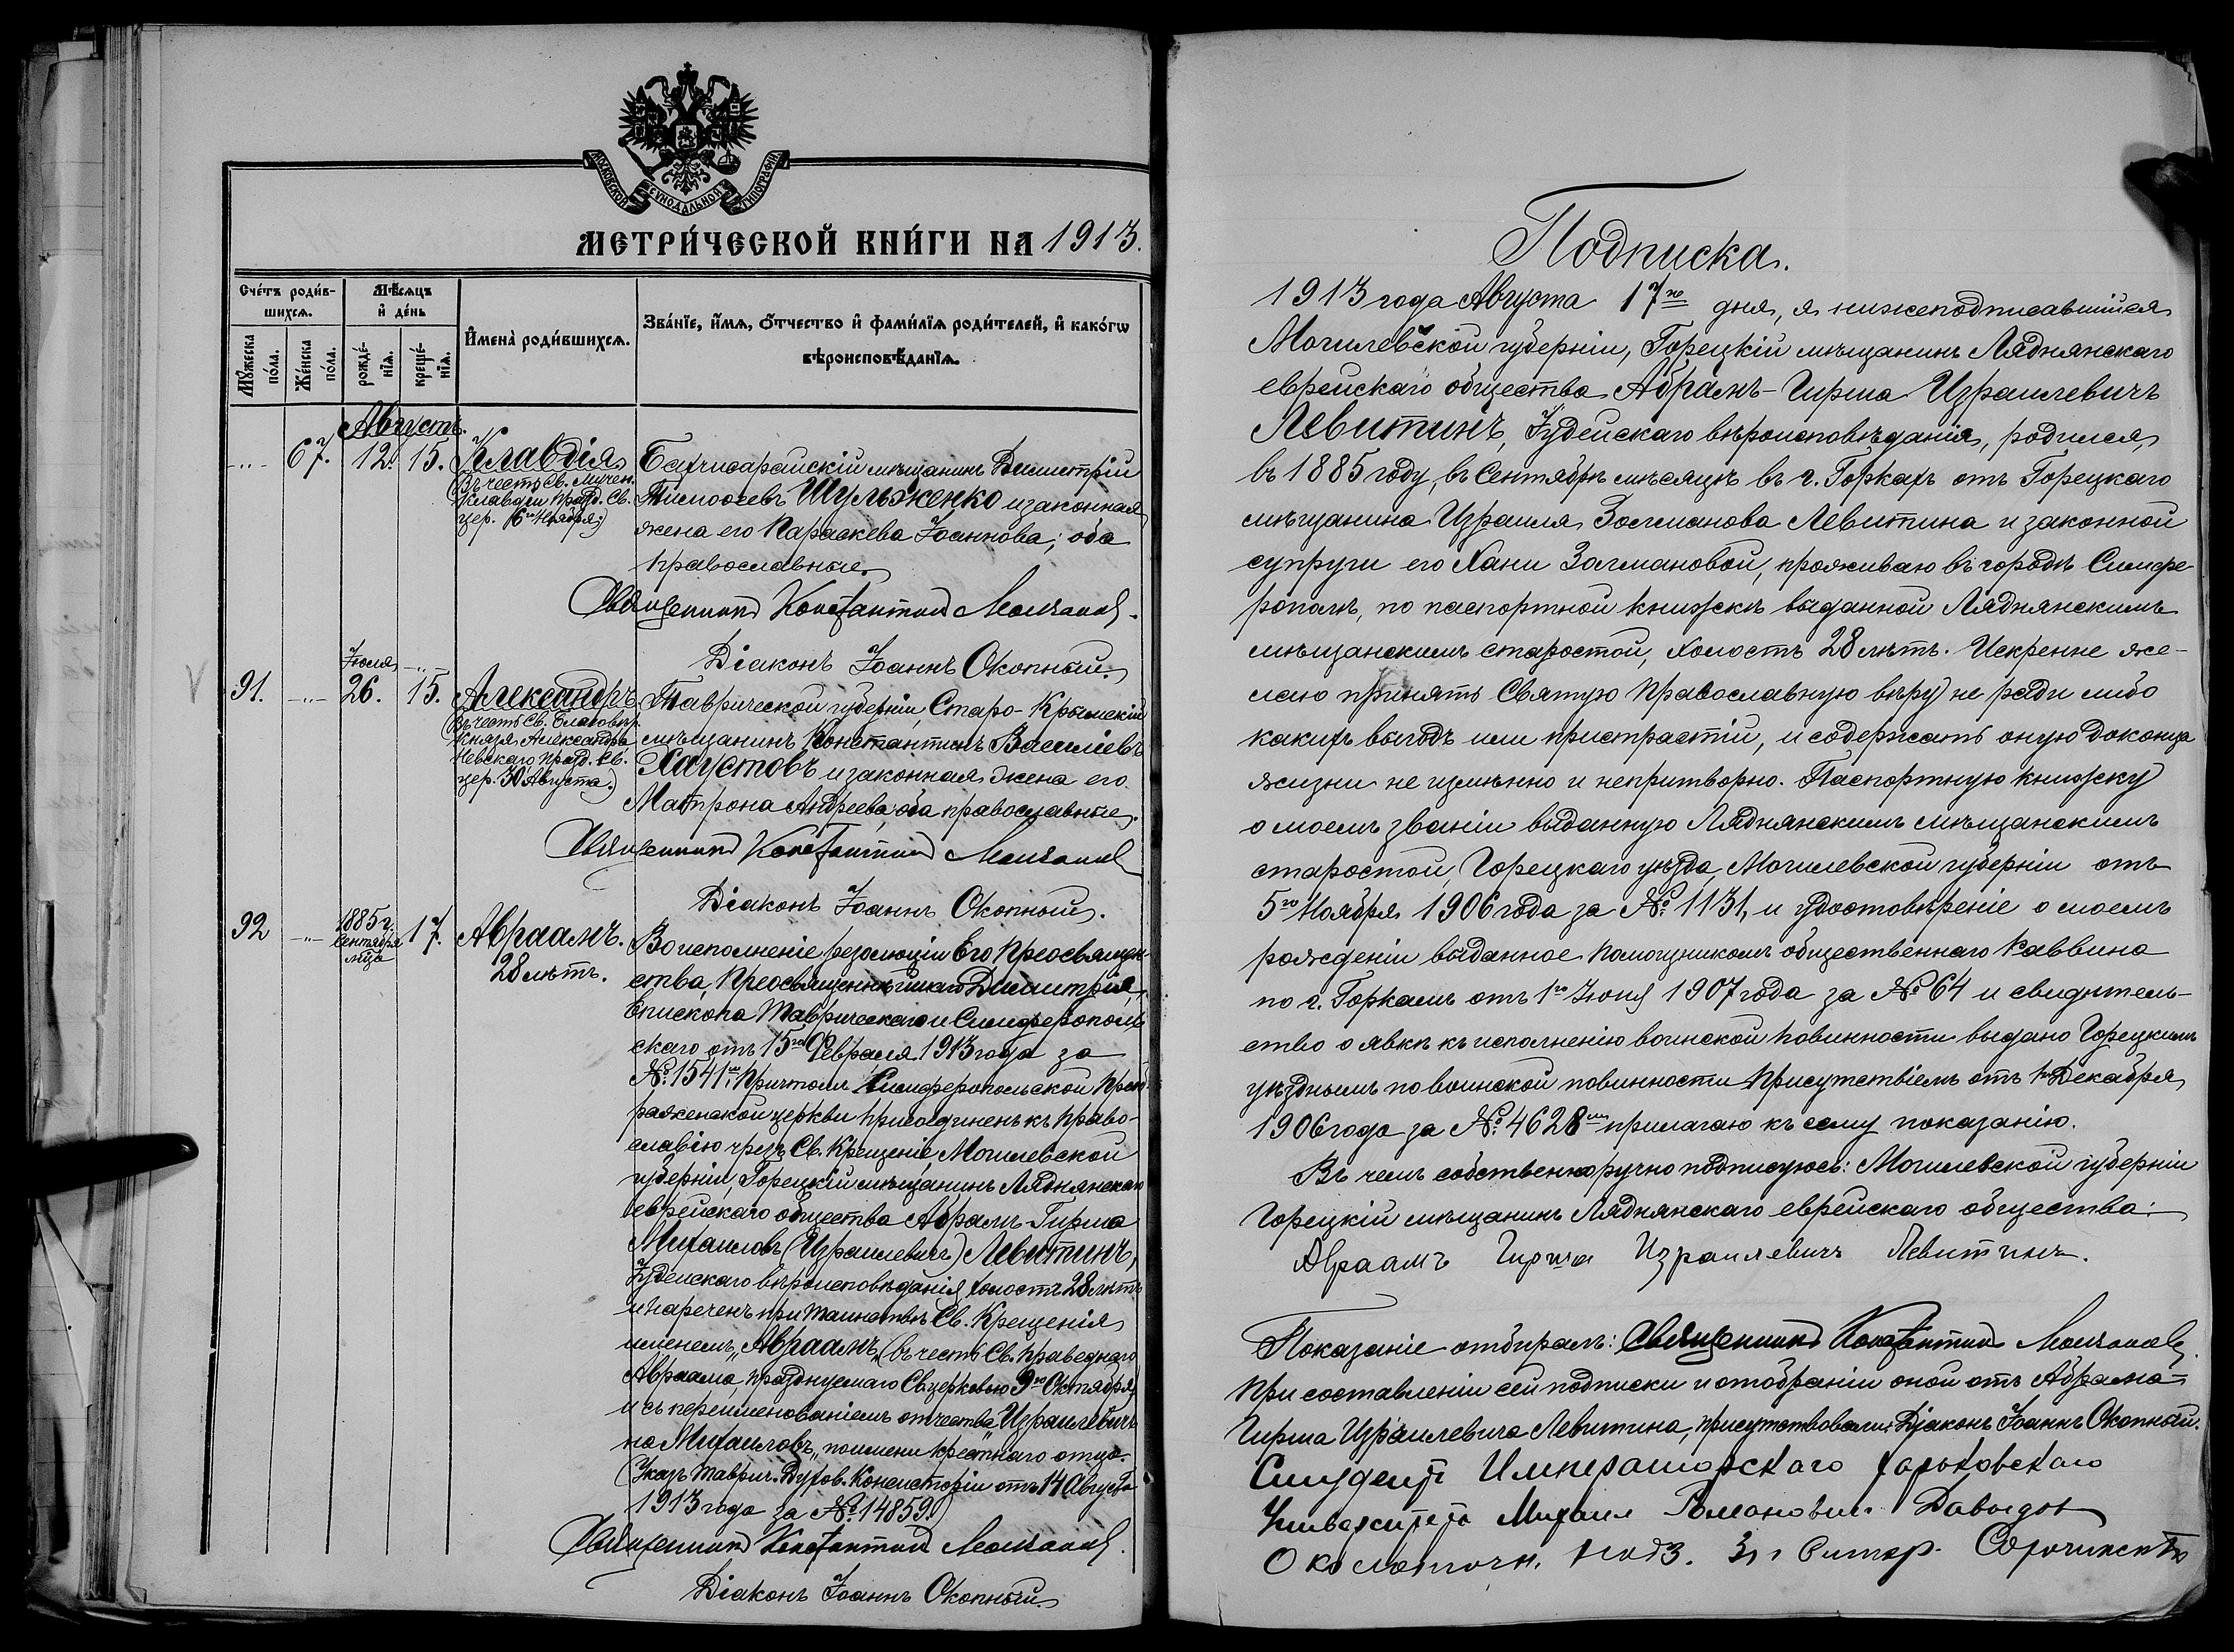 МОСКОВСКОЙ СУНОДАЛЬНОЙ ТИПОГРАФІИ
МЕТРИ́ЧЕСКОЙ КНИ́ГИ НА 1913.
Сче́тъ роди́в-
шихсѧ.
Мѣ́сѧцъ
и҆ де́нь
И҆мена̀ роди́вшихсѧ.
Зва́нїе, и҆́мѧ, ѻ҆́тчество и҆ фами́лїѧ роди́телей, и҆ како́гѡ
вѣроисповѣ́данїѧ.
Мꙋ́жеска
по́ла.
Же́нска
по́ла.
рожде́-
нїѧ.
креще́-
нїѧ.
Августъ.
-"- 67. 12. 15. Клавдія
(Въ честь Св. Мучен.
Клавдіи празд. Св.
цер. 6го Ноября.)
Бахчисарайскій мѣщанинъ Димитрій
Тимоѳеевъ Шульженко и законная
жена его Параскева Іоаннова; оба
православные.
Священникъ Константинъ Молчановъ.
Діаконъ Іоаннъ Окопный.
Іюля -"-
91. -"- 26. 15. Александръ
(Въ честь Св. Благовѣр.
Князя Александра
Невскаго празд. Св.
цер. 30 Августа.)
Таврической губерніи, Старо-Крымскій
мѣщанинъ Константинъ Василіевъ
Хаустовъ и законная жена его
Матрона Андреева, оба православные.
Священникъ Константинъ Молчановъ
Діаконъ Іоаннъ Окопный.
92 -"- 1885 г.
Сентября
м-ца
17. Авраамъ.
28 лѣтъ.
Во исполненіе резолюціи Его Преосвящен-
ства, Преосвященнѣйшаго Димитрія,
Епископа Таврическаго и Симферополь-
скаго отъ 15го Февраля 1913 года за
№ 1541мъ, Причтомъ Симферопольской Преоб-
раженской церкви присоединенъ къ Право-
славію чрезъ Св. Крещеніе, Могилевской
губерніи, Горецкій мѣщанинъ Ляднянскаго
еврейскаго общества Абрамъ-Гирша
Михаиловъ (Израилевичъ) Левитинъ,
Іудейскаго вѣроисповѣданія, холостъ 28 лѣтъ
и нареченъ при таинствѣ Св. Крещенія
именемъ „Авраамъ„ (въ честь Св. праведнаго
Авраама, празднуемаго Св. церковью 9го Октября)
и съ переименованіемъ отчества „Израилевичъ
на Михаиловъ„ по имени крестнаго отца.
(Указъ Таврич. Духов. Консисторіи отъ 14 Августа
1913 года за № 14859.)
Священникъ Константинъ Молчановъ.
Діаконъ Іоаннъ Окопный.
Подписка.
1913 года Августа 17го дня, я нижеподписавшійся
Могилевской губерніи, Горецкій мѣщанинъ Ляднянскаго
еврейскаго общества Абрамъ-Гирша Израилевичъ
Левитинъ, Іудейскаго вѣроисповѣданія, родился
въ 1885 году, въ Сентябрѣ мѣсяцѣ въ г. Горкахъ отъ Горецкаго
мѣщанина Израиля Залманова Левитина и законной
супруги его Хани Залмановой, проживаю въ городѣ Симфе-
рополѣ, по паспортной книжкѣ выданной Ляднянскимъ
мѣщанскимъ старостой, холостъ 28 лѣтъ. Искренне же-
лаю принять Святую Православную вѣру не ради либо
какихъ выгодъ или пристрастій, и содержать оную до конца
жизни не измѣнно и непритворно. Паспортную книжку
о моемъ званіи выданную Ляднянскимъ мѣщанскимъ
старостой, Горецкаго уѣзда, Могилевской губерніи отъ
5го Ноября 1906 года за № 1131, и удостовѣреніе о моемъ
рожденіи выданное помощникомъ общественнаго раввина
по г. Горкамъ отъ 1го Іюня 1907 года за № 64 и свидѣтель-
ство о явкѣ къ исполненію воинской повинности выдано Горецкимъ
уѣзднымъ по воинской повинности Присутствіемъ отъ 1го Декабря
1906 года за № 4628мъ прилагаю къ сему показанію.
Въ чемъ собственноручно подписуюсь: Могилевской губерніи
Горецкій мѣщанинъ Ляднянскаго еврейскаго общества:
Авраамъ Гирша Израилевичъ Левитинъ.
Показаніе отбиралъ: Священникъ Константинъ Молчановъ.
При составленіи сей подписки и отобраніи оной отъ Абрама-
Гирша Израилевича Левитина, присутствовали: Діаконъ Іоаннъ Окопный.
Студентъ Императорскаго Харьковскаго
Университета Михаил Романович Давыдов
Околоточн. надз. 3 г Симф.